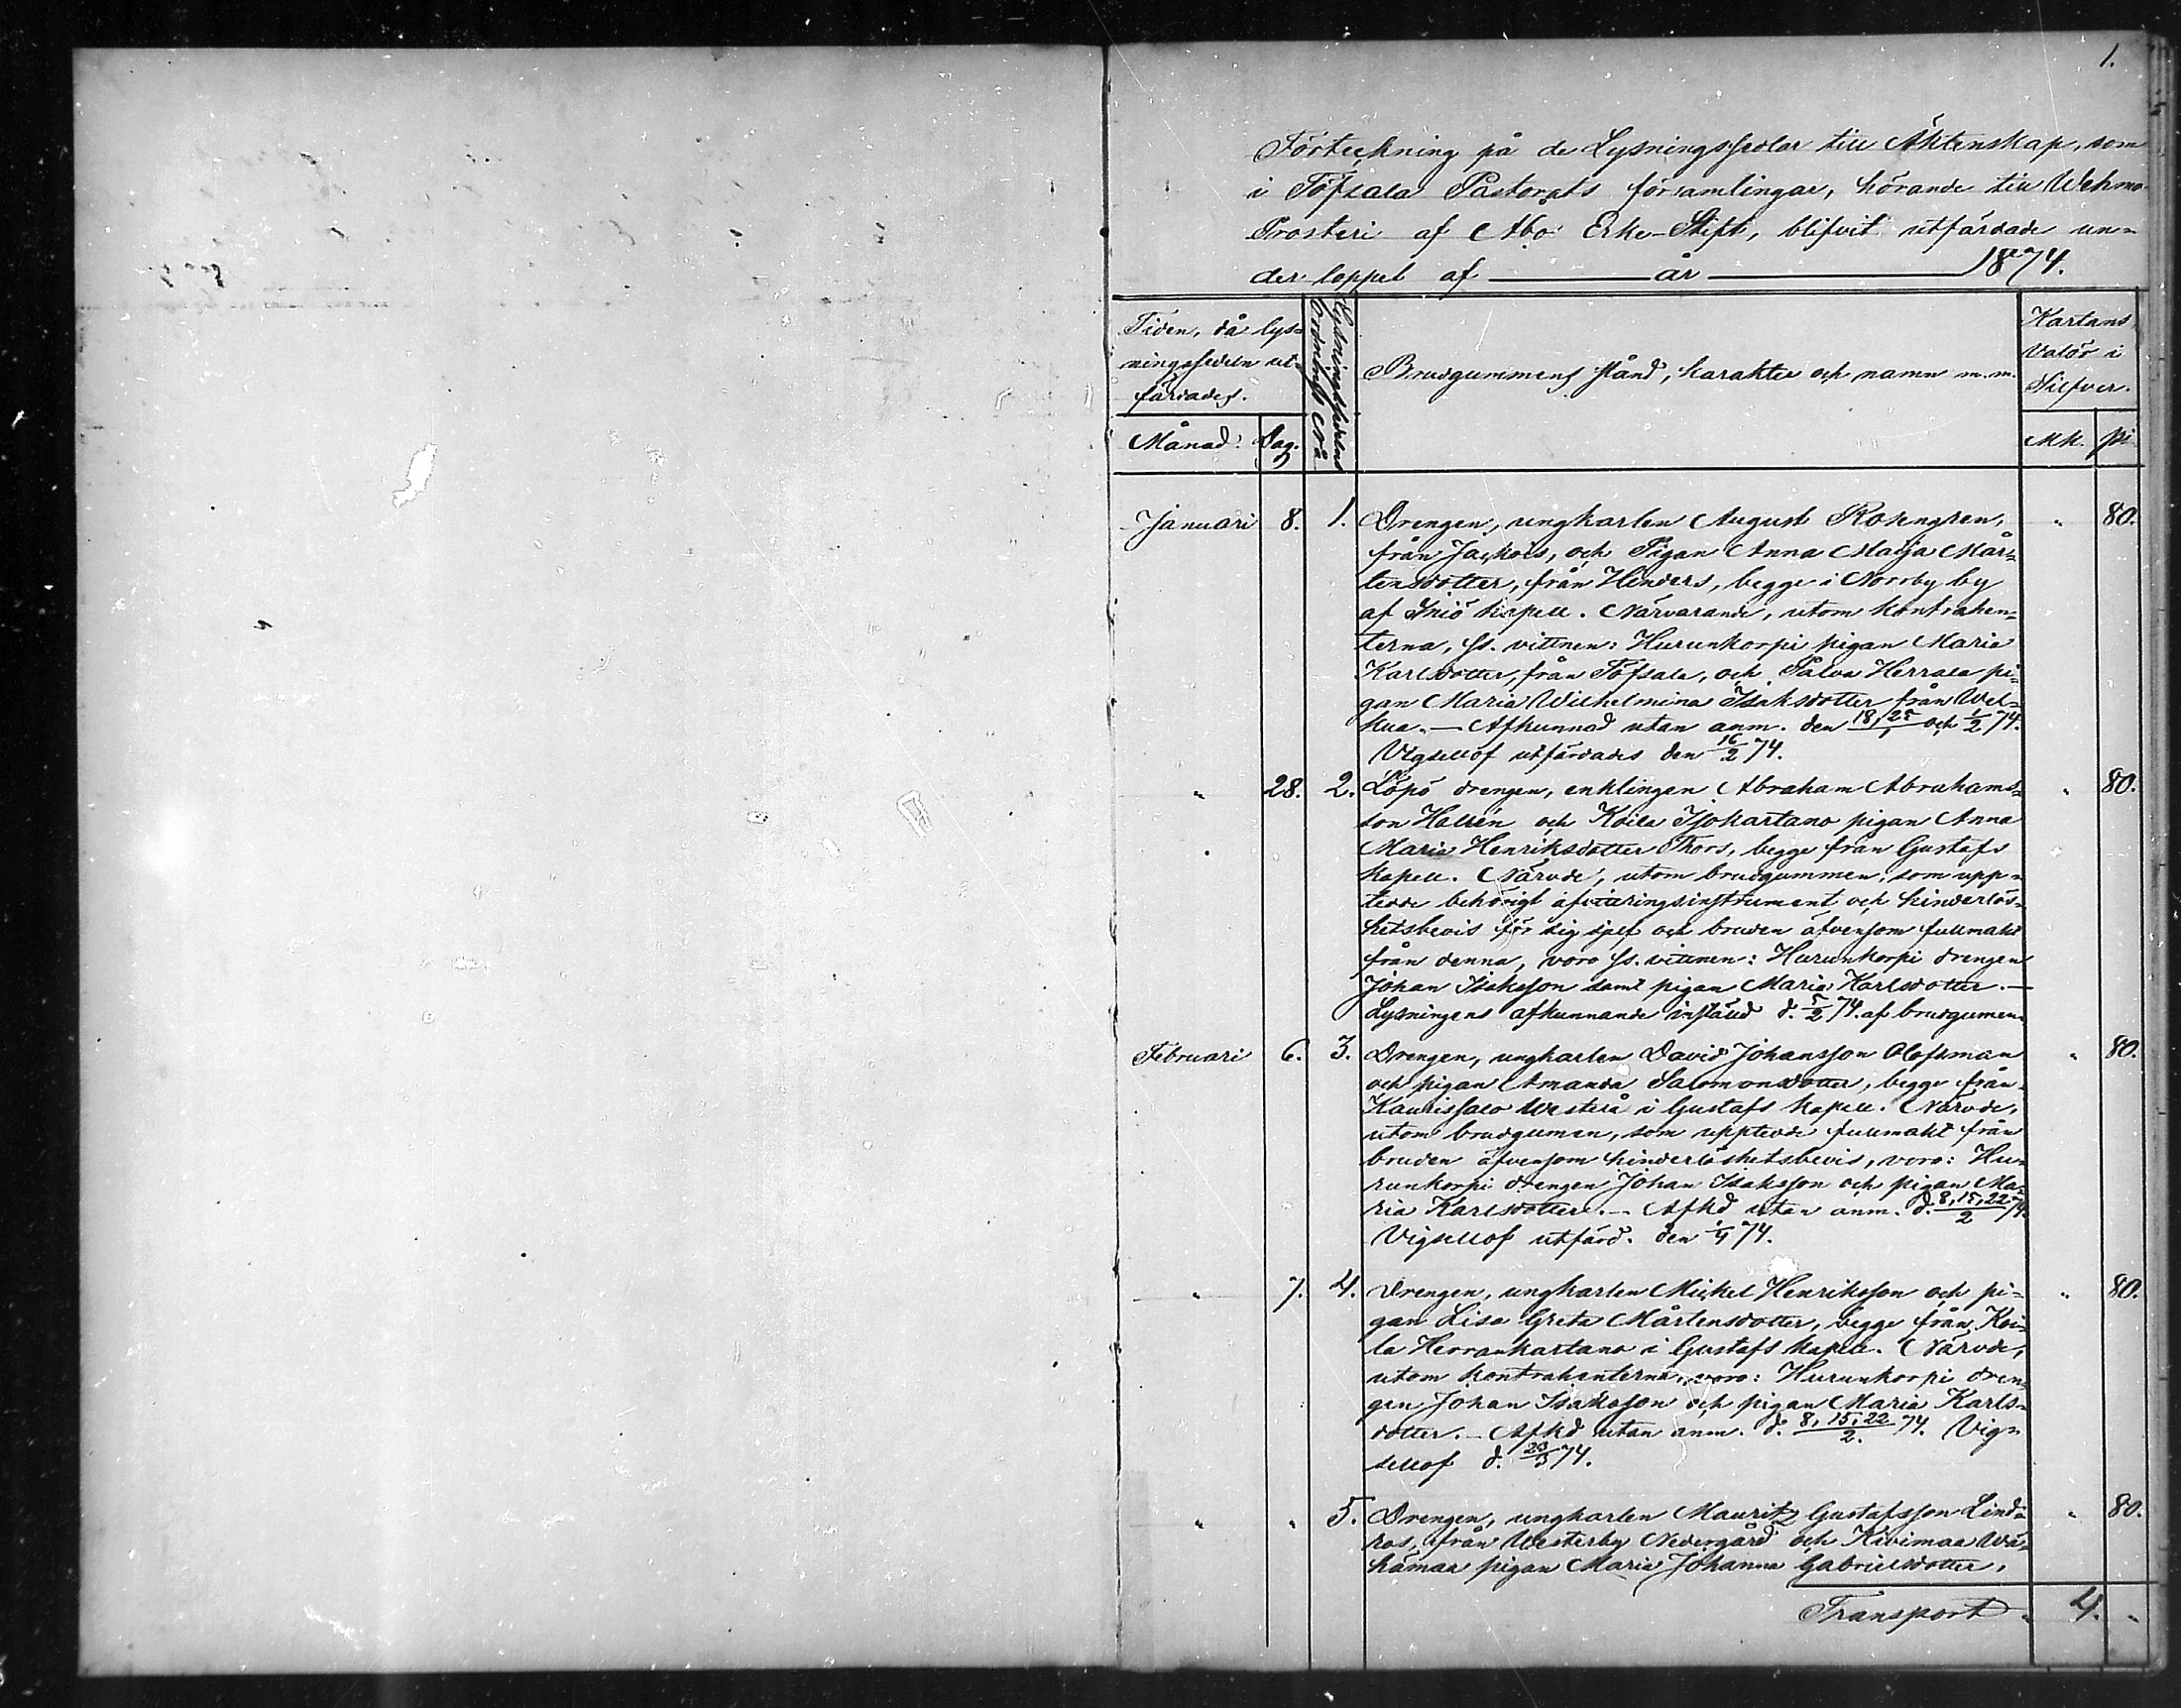 1.
Förteckning på de Lysningssedlar till Äktenskap, som
i Töfsala Pastorats församlingar, hörande till Wehmo
Prosteri af Åbo Erke-Stift, blifvit utfärdade un-
der loppet af — år — 1874.
Tiden, då lys-
ningssedeln ut-
färdades.
Månad. Dag.
Lysningssedelns
ordnings Nrå
Brudgummens stånd, karakter och namn m.m.
Kartans
Valör i
Silfver.
Mk. pi
Januari 8. 1. Drengen, ungkarlen August Rosengren, " 80.
från Jackois, och Pigan Anna Maja Mår-
tensdotter, från Hinders, begge i Norrby by
af Iniö kapell. Närvarande, utom kontrahen-
terna, ss. vittnen: Hurunkorpi pigan Maria
Karlsdotter, från Töfsala, och Palva Herrala pi-
gan Maria Wilhelmina Isaksdotter från Wel-
kua. — Afkunnad utan anm. den 18, 25/1 och 1/2 74.
Vigsellof utfärdades den 16/2 74.
" 28. 2. Löpö drengen, enklingen Abraham Abrahams- " 80.
son Hallén och Koila Isokartano pigan Anna
Maria Henriksdotter Thors, begge från Gustafs
kapell. Närvde, utom brudgummen, som upp-
tedde behörigt afvittringsinstrument och hinderlös-
hetsbevis för sig sjelf och bruden äfvensom fullmakt
från denna, voro ss. vittnen: Hurunkorpi drengen
Johan Isaksson samt pigan Maria Karlsdotter. —
Lysningens afkunnande instäld d. 5/2 74. af brudgumen.
Februari 6. 3. Drengen, ungkarlen David Johansson Olofsman " 80.
och pigan Amanda Salomonsdotter, begge från
Kaurissalo Westerå i Gustafs kapell. Närvde,
utom brudgumen, som upptedde fullmakt från
bruden äfvensom hinderlöshetsbevis, voro: Hu-
runkorpi drengen Johan Isaksson och pigan Ma-
ria Karlsdotter. — Afkd utan anm. d. 8, 15, 22/2 74.
Vigsellof utfärd. den 1/4 74.
" 7. 4. Drengen, ungkarlen Mickel Henriksson och pi- " 80.
gan Lisa Greta Mårtensdotter, begge från Koi-
la Herrankartano i Gustafs kapell. Närvde,
utom kontrahenterna, voro: Hurunkorpi dren-
gen Johan Isaksson och pigan Maria Karls-
dotter. — Afkd utan anm. d. 8, 15, 22/2. 74. Vig-
sellof d. 23/3 74.
" " 5. Drengen, ungkarlen Mauritz Gustafsson Lind- " 80.
ros, från Westerby Nedergård och Kivimaa Wä-
hämaa pigan Maria Johanna Gabrielsdotter,
Transport " 4. "